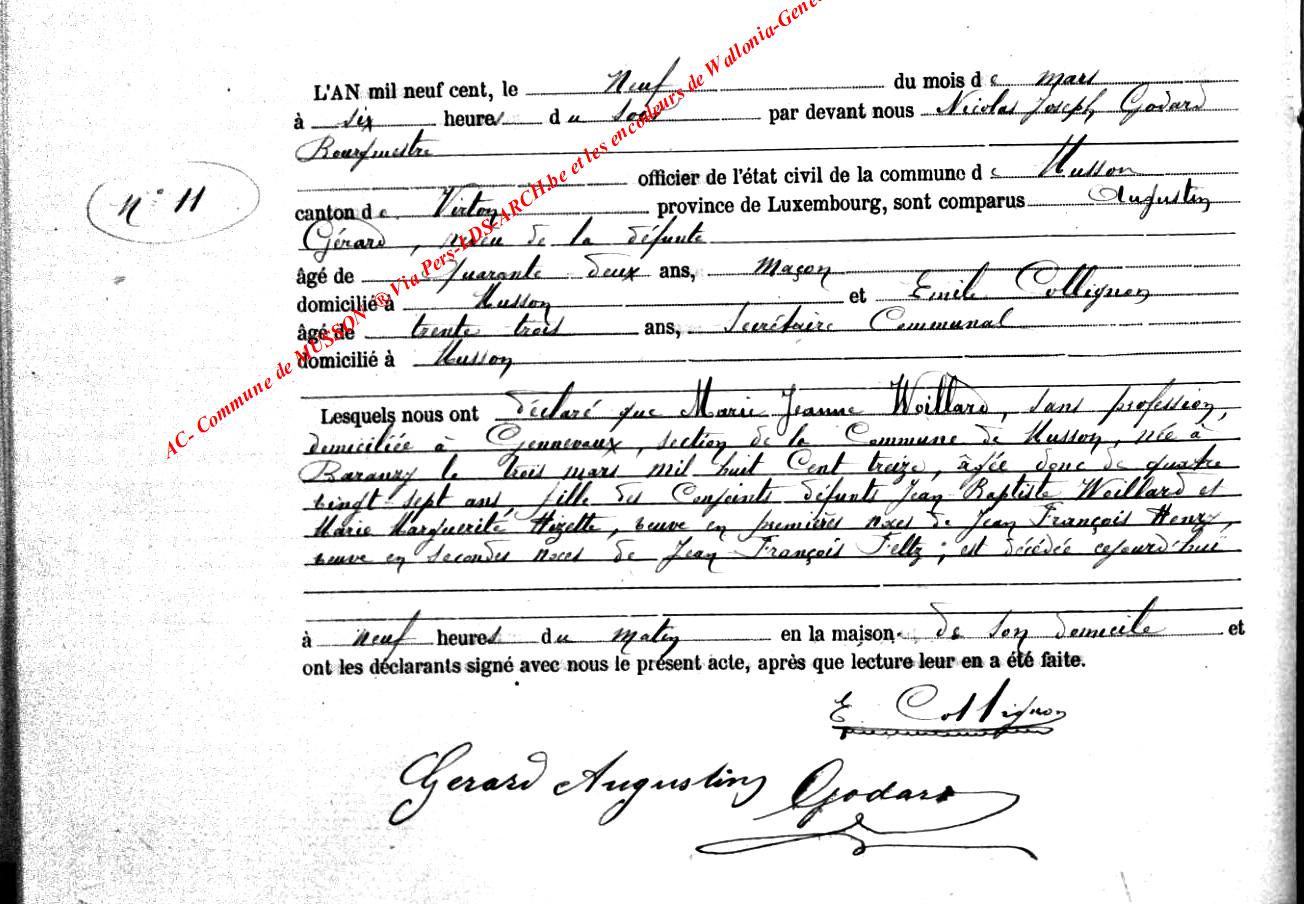 L'AN mil neuf cent, le Neuf du mois de mars
à six heures du soir par devant nous Nicolas Joseph Godard
Bourgmestre
officier de l'état civil de la commune de Musson
N° 11
canton de Virton province de Luxembourg, sont comparus Augustin
Gérard, neveu de la défunte
âgé de quarante deux ans, maçon
domicilié à Musson et Emile Collignon
âgé de trente trois ans, Secrétaire Communal
domicilié à Musson
Lesquels nous ont déclaré que Marie Jeanne Woillard, sans profession,
domiciliée à Gennevaux, section de la Commune de Musson, née à
Baranzy le trois mars mil huit Cent treize, âgée donc de quatre
vingt-sept ans, fille des Conjoints défunts Jean Baptiste Woillard et
Marie Marguerite Hizette, veuve en premières noces de Jean François Henry,
veuve en secondes noces de Jean François Feltz; est décédée cejourd'hui
à neuf heures du matin en la maison de son domicile et
ont les déclarants signé avec nous le présent acte, après que lecture leur en a été faite.
E. Collignon
Gerard Augustin Godard
AC- Commune de MUSSON ® Via Pers-LDS-ARCH.be et les encodeurs de Wallonia-Gene